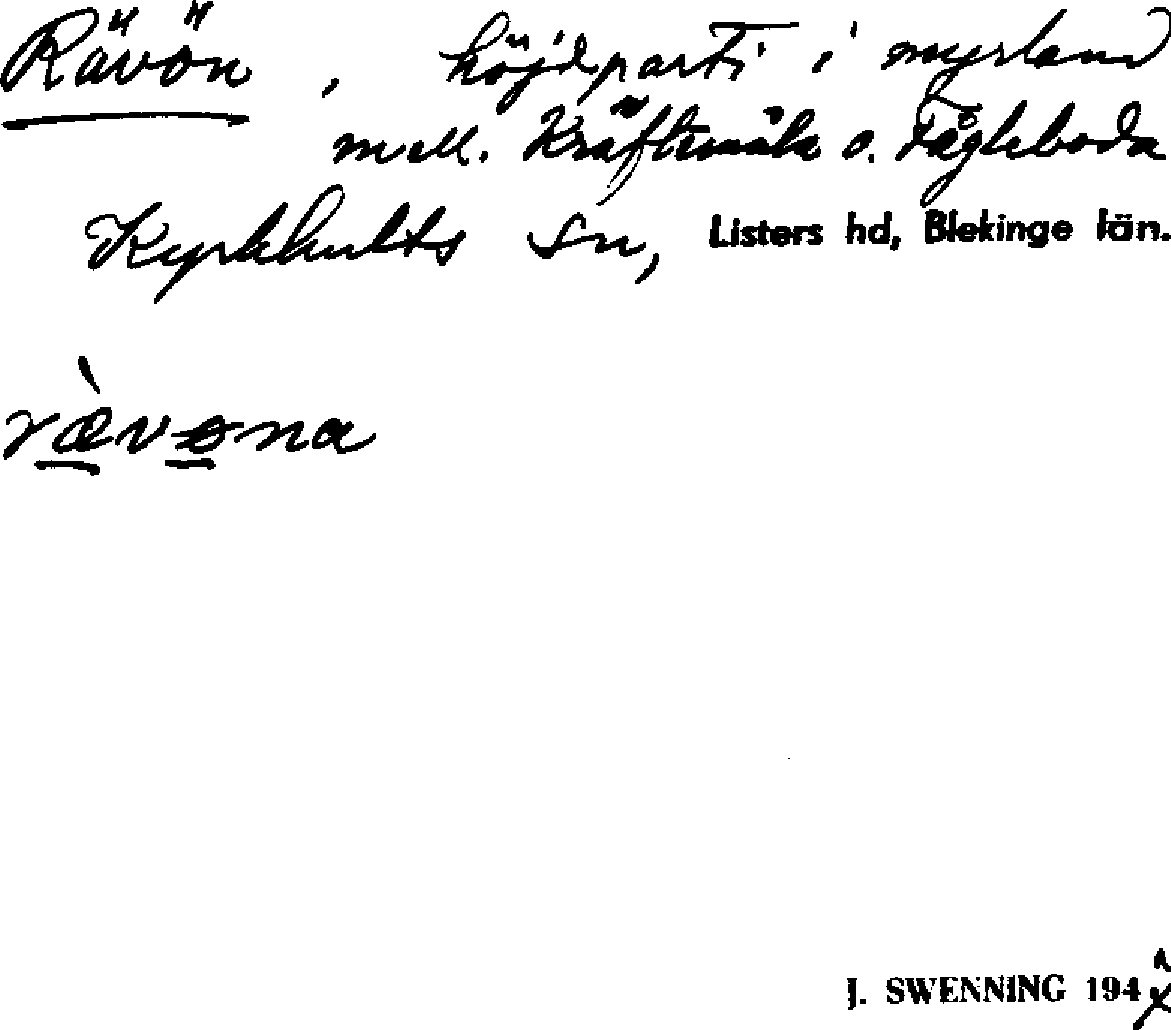 Rävön, höjdparti i myrland
mell. Kräftemåla o. Fågleboda
Kyrkhults Sn, Listers hd, Blekinge län.
ræ̀vøna
J. SWENNING 194